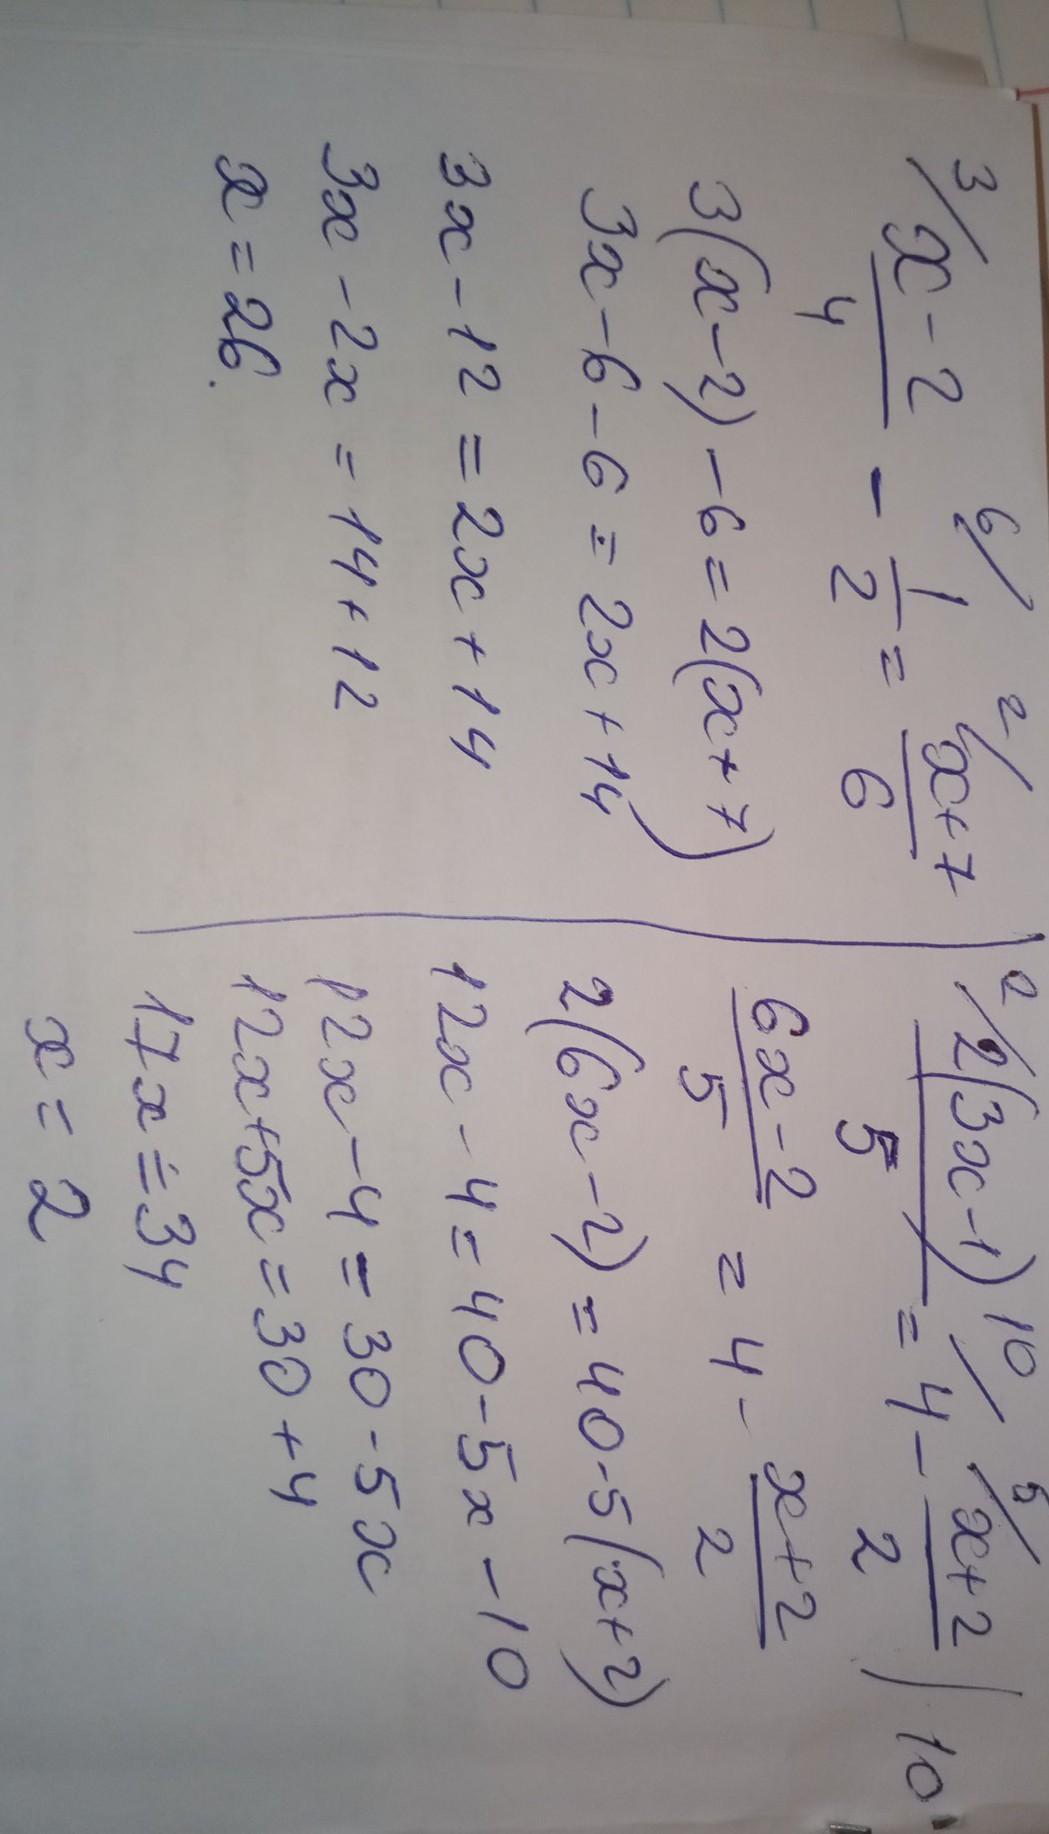 3/ (x-2)/4 - 6/ 1/2 = 2/ (x+7)/6
3(x-2)-6=2(x+7)
3x-6-6=2x+14
3x-12=2x+14
3x-2x=14+12
x=26.
2/ 2(3x-1)/5 = 10/ 4 - 5/ (x+2)/2 | 10
(6x-2)/5 = 4 - (x+2)/2
2(6x-2)=40-5(x+2)
12x-4=40-5x-10
12x-4=30-5x
12x+5x=30+4
17x=34
x=2